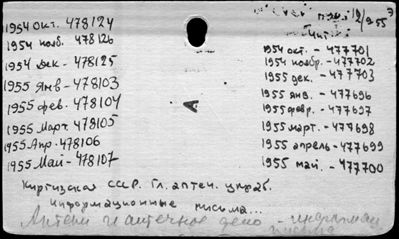 1954 окт. 478124
1954 нояб. 478126
1954 дек - 478125
1955 янв - 478103
1955 фев. 478104
1955 март 478105
1955 Апр. 478106
1955 Май - 478107
12/1955
Чит
1954 окт. - 477701
1954 ноябр. - 477702
1955 дек. - 477703
1955 янв. - 477696
1955 февр. - 477697
1955 март. - 477698
1955 апрель - 477699
1955 май. - 477700
А
Киргизская ССР. Гл. аптеч. управ.
Информационные письма...
Аптеки и аптечное дело - информац
письма